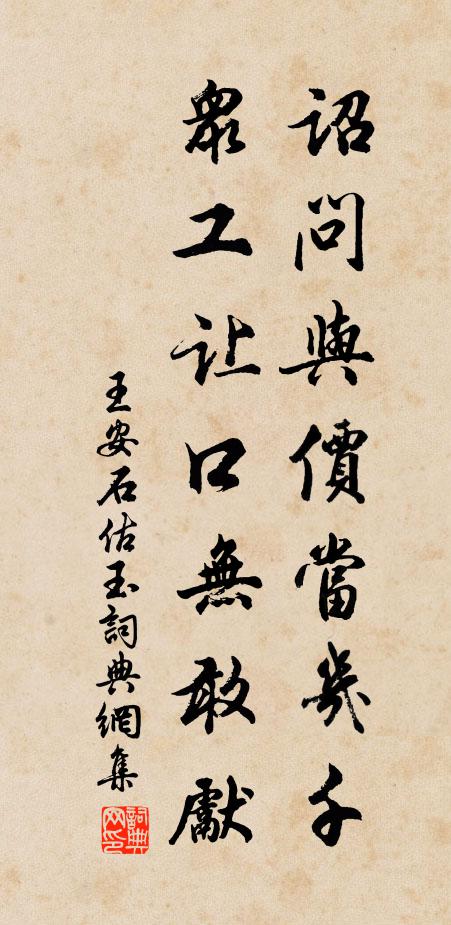 詔問與價當幾千
眾工让口無敢獻
王安石估玉詞典網集
詞典网印